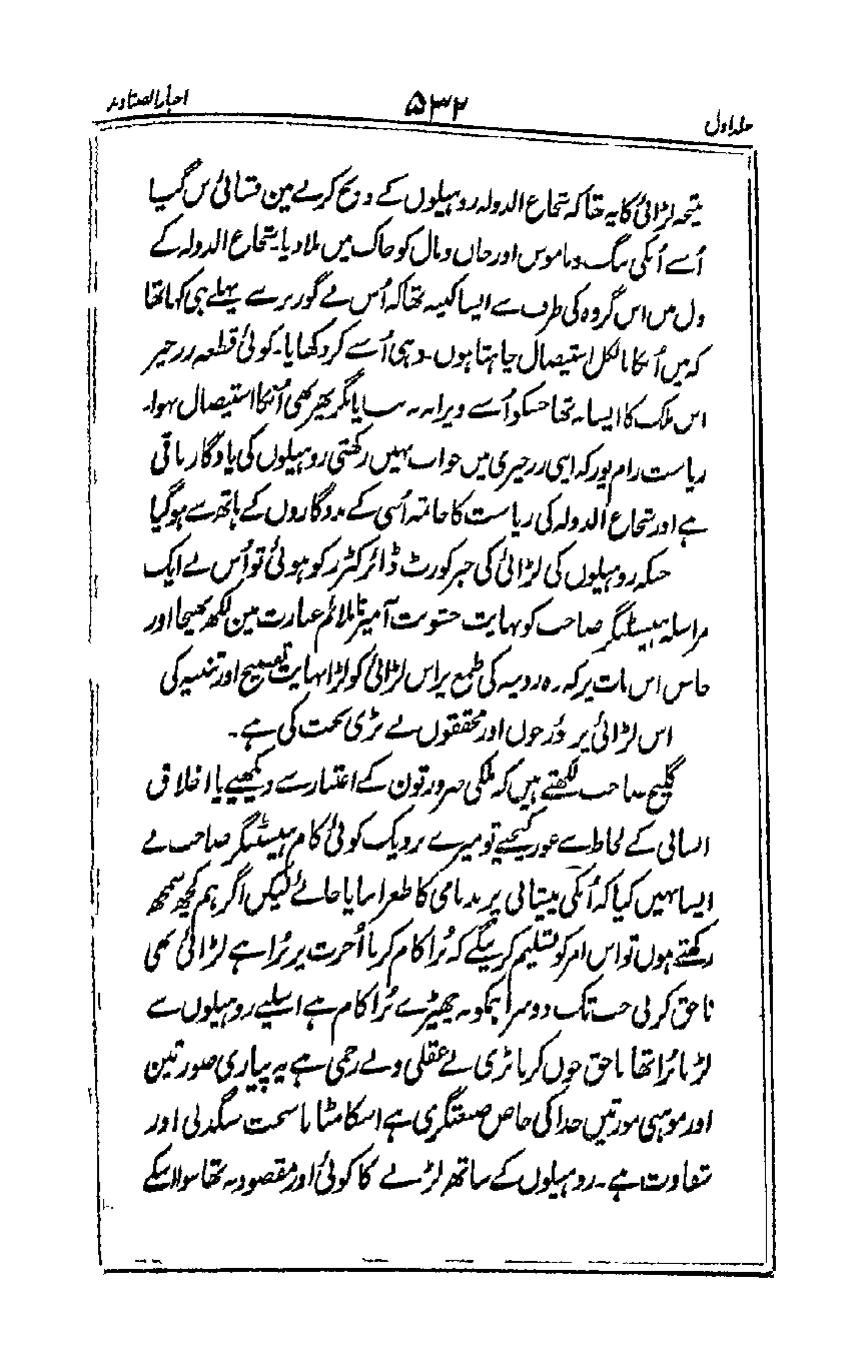 جلد اول ۵۳۲ اخبار الصنادید
نتیجہ لڑائی کا یہ تھا کہ شجاع الدولہ روہیلوں کے ذبح کرنے مین قسائی بن گیا
اُسے اُنکی ننگ و ناموس اور جان و مال کو خاک میں ملا دیا شجاع الدولہ کے
دل میں اس گروہ کی طرف سے ایسا کینہ تھا کہ اُس نے گورنر سے پہلے ہی کہا تھا
کہ میں اُنکا بالکل استیصال چاہتا ہوں۔ وہی اُسے کر دکھایا۔ کوئی قطعہ زرخیز
اس ملک کا ایسا نہ تھا جسکو اُسے ویرانہ نہ بنایا مگر پھر بھی اُنکا استیصال نہوا۔
ریاست رام پور کہ اپنی زرخیزی میں جواب نہیں رکھتی روہیلوں کی یادگار باقی
ہے اور شجاع الدولہ کی ریاست کا خاتمہ اُسی کے مددگاروں کے ہاتھ سے ہو گیا
جبکہ روہیلوں کی لڑائی کی خبر کورٹ ڈائرکٹرز کو ہوئی تو اُس نے ایک
مراسلہ ہیسٹنگز صاحب کو نہایت خشونت آمیز ناملائم عبارت مین لکھ بھیجا اور
خاص اس بات پر کہ روپیہ کی طمع پر اس لڑائی کو لڑا نہایت تفضیح اور تنبیہ کی
اس لڑائی پر مورخوں اور محققوں نے بڑی بحث کی ہے۔
گلیج صاحب لکھتے ہیں کہ ملکی ضرورتون کے اعتبار سے دیکھیے یا اخلاق
انسانی کے لحاظ سے غور کیجیے تو میرے نزدیک کوئی کام ہیسٹنگز صاحب نے
ایسا نہیں کیا کہ اُنکی پیشانی پر بدنامی کا طغرا بنایا جائے لیکن اگر ہم کچھ سمجھ
رکھتے ہوں تو اس امر کو تسلیم کرینگے کہ بُرا کام کرنا اُجرت پر بُرا ہے لڑائی بھی
ناحق کرنی جب تک دوسرا ہمکو نہ چھیڑے بُرا کام ہے اسلیے روہیلوں سے
لڑنا بُرا تھا ناحق خوں کرنا بڑی بے عقلی و بے رحمی ہے یہ پیاری صورتین
اور موہنی مورتیں خدا کی خاص صنعتگری ہے اسکا مٹانا سخت سنگدلی اور
شقاوت ہے۔ روہیلوں کے ساتھ لڑنے کا کوئی اور مقصود نہ تھا سوا اسکے